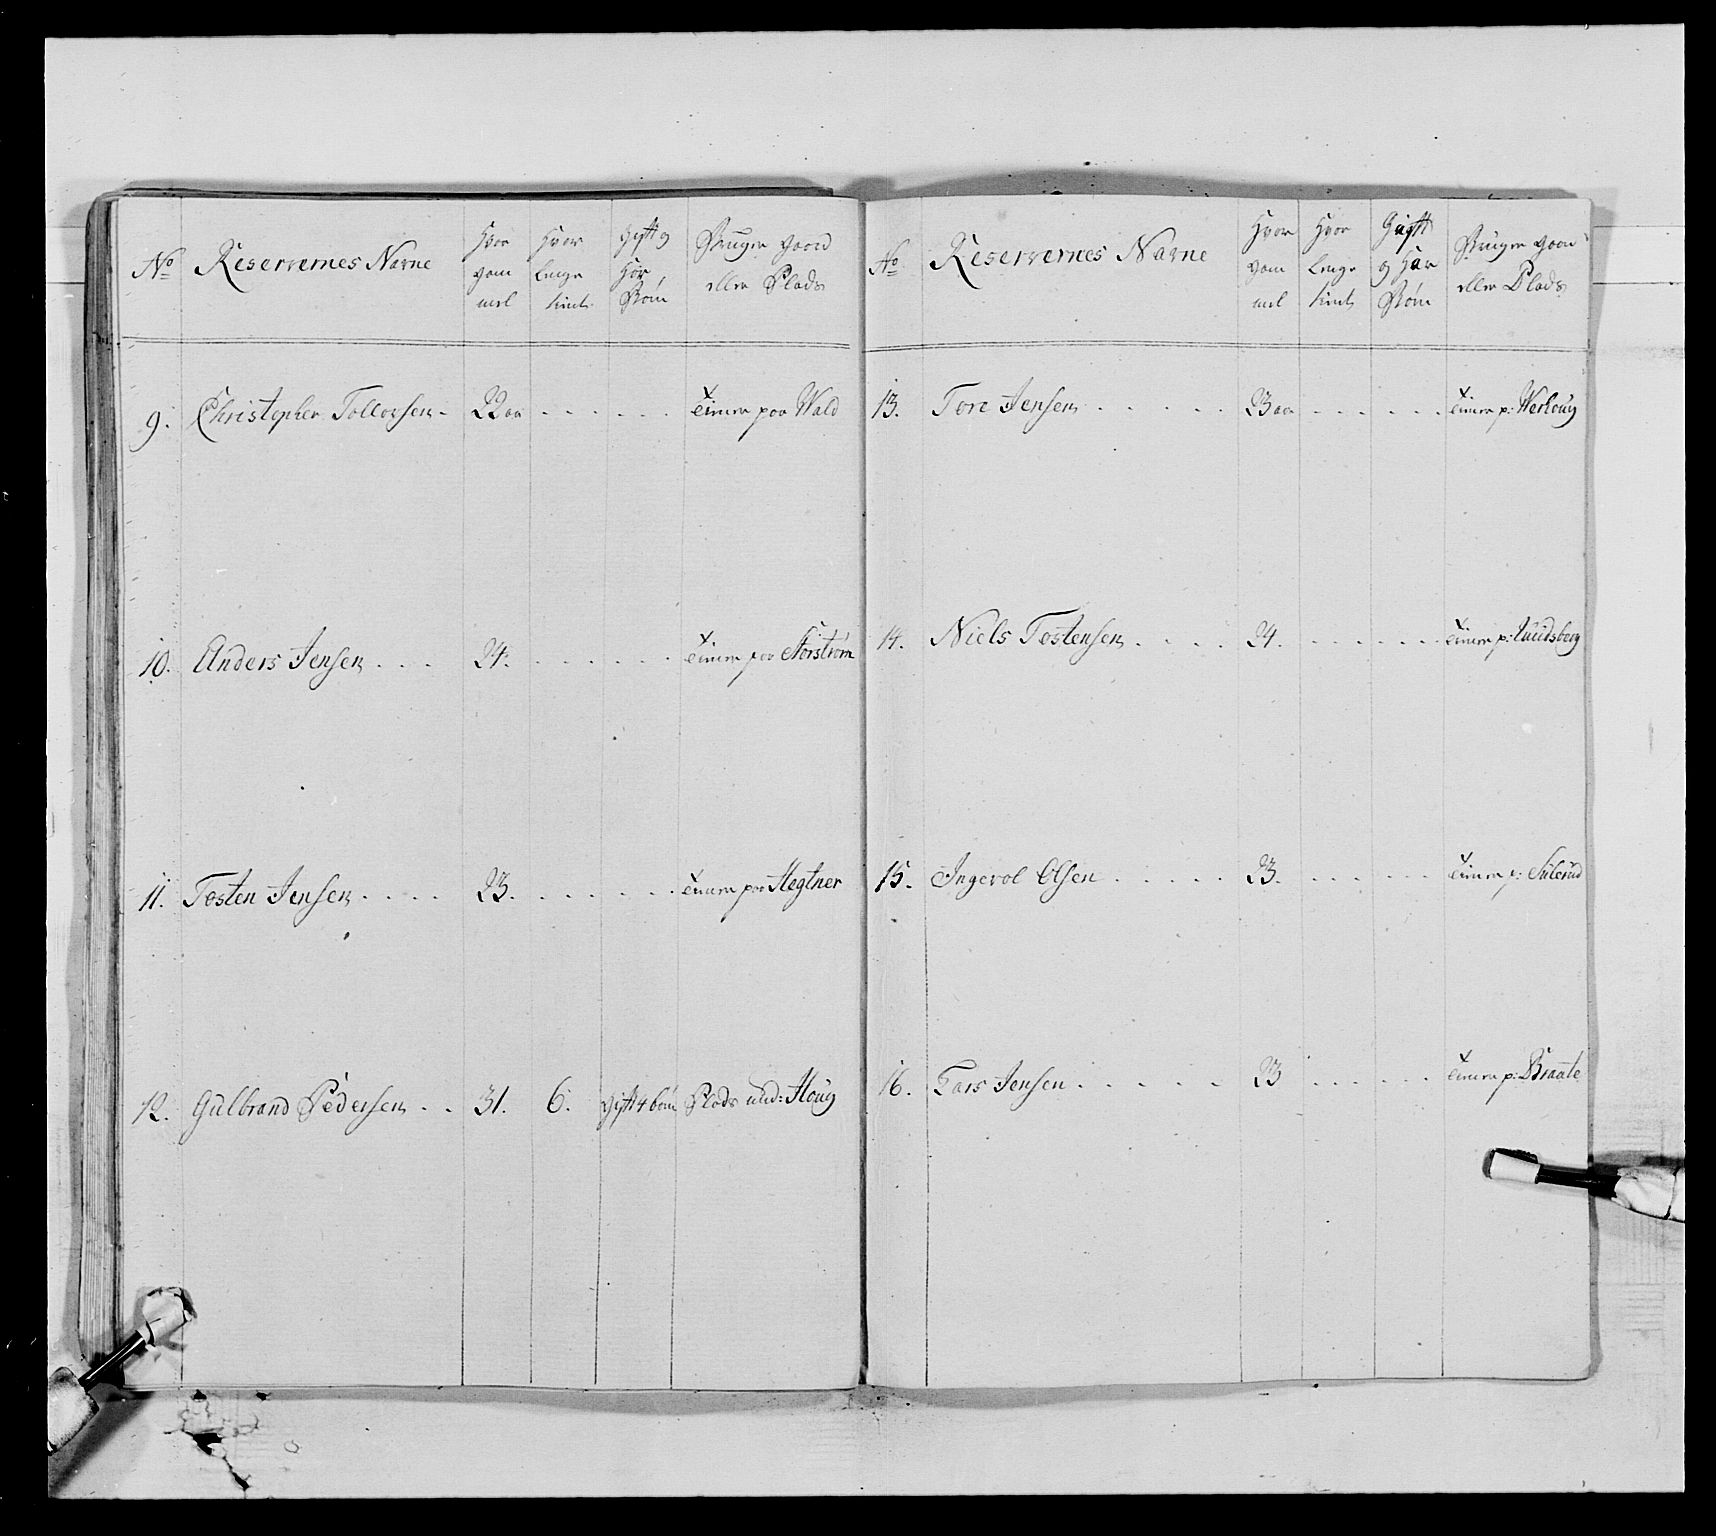 No Reservernes Navne Hvor gammel Hvor lenge tient Gift og Hør Børn Bruger gaard eller Plads
9. Christopher Tollovsen 22 aa tiener paa Wald
10. Anders Jensen 24. tiener paa Storstrøm
11. Tosten Jensen 23. tiener paa Hegtner
12. Gulbrand Pedersen 31. 6. gift 4 børn Plads und: Houg
No Reservernes Navne Hvor gammel Hvor lenge tient Gift og Har Børn Bruger gaard eller Plads
13. Tore Jensen 23 aar tiener p:
14. Niels Tostensen 24. tiener p:
15. Ingevol Olsen 23. tiener p:
16. Lars Jensen 23 tiener p: Braate